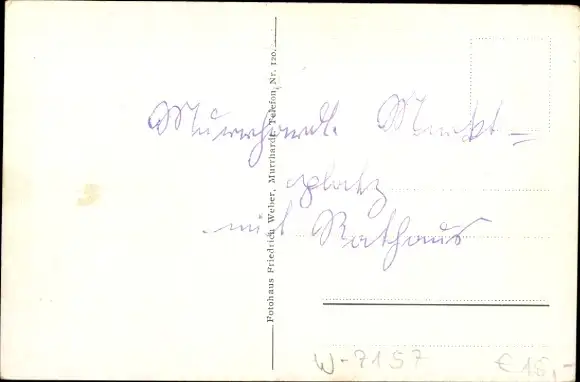 Fotohaus Friedrich Weber, Murrhardt. Telefon Nr. 120.
Murrhardt. Markt-
platz
mit Rathaus
W-7157 € 15,-